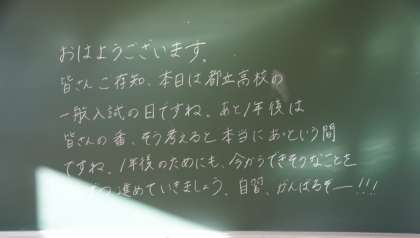 おはようございます。
皆さんご存知、本日は都立高校の
一般入試の日ですね。あと1年後は
皆さんの番、そう考えると本当にあっという間
ですね。1年後のためにも、今からできそうなことを
進めていきましょう。自習、がんばるぞー!!!